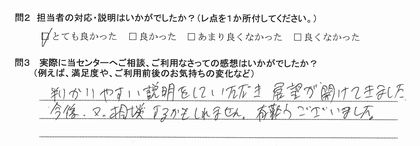 問2 担当者の対応・説明はいかがでしたか?(レ点を1か所付してください。)
☑とても良かった □良かった □あまり良くなかった □良くなかった
問3 実際に当センターへご相談、ご利用なさっての感想はいかがでしたか?
(例えば、満足度や、ご利用前後のお気持ちの変化など)
判かりやすい説明をしていただき 展望が開けてきました
今後、又、相談するかもしれません。有難うございました。